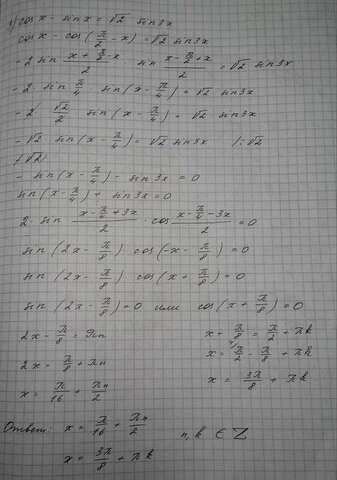 1) cos x - sin x = √2 sin 3x
cos x - cos(π/2 - x) = √2 sin 3x
-2 sin (x + π/2 - x)/2 sin (x - π/2 + x)/2 = √2 sin 3x
-2 · sin π/4 · sin(x - π/4) = √2 sin 3x
-2 · √2/2 sin(x - π/4) = √2 sin 3x
-√2 sin(x - π/4) = √2 sin 3x /:√2
- sin(x - π/4) - sin 3x = 0
sin(x - π/4) + sin 3x = 0
2 · sin (x - π/4 + 3x)/2 · cos (x - π/4 - 3x)/2 = 0
sin(2x - π/8) cos(-x - π/8) = 0
sin(2x - π/8) cos(x + π/8) = 0
sin(2x - π/8) = 0 или cos(x + π/8) = 0
2x - π/8 = πn
2x = π/8 + πn
x = π/16 + πn/2
x + π/8 = π/2 + πk
x = π/2 - π/8 + πk
x = 3π/8 + πk
Ответ: x = π/16 + πn/2
x = 3π/8 + πk
n, k ∈ Z